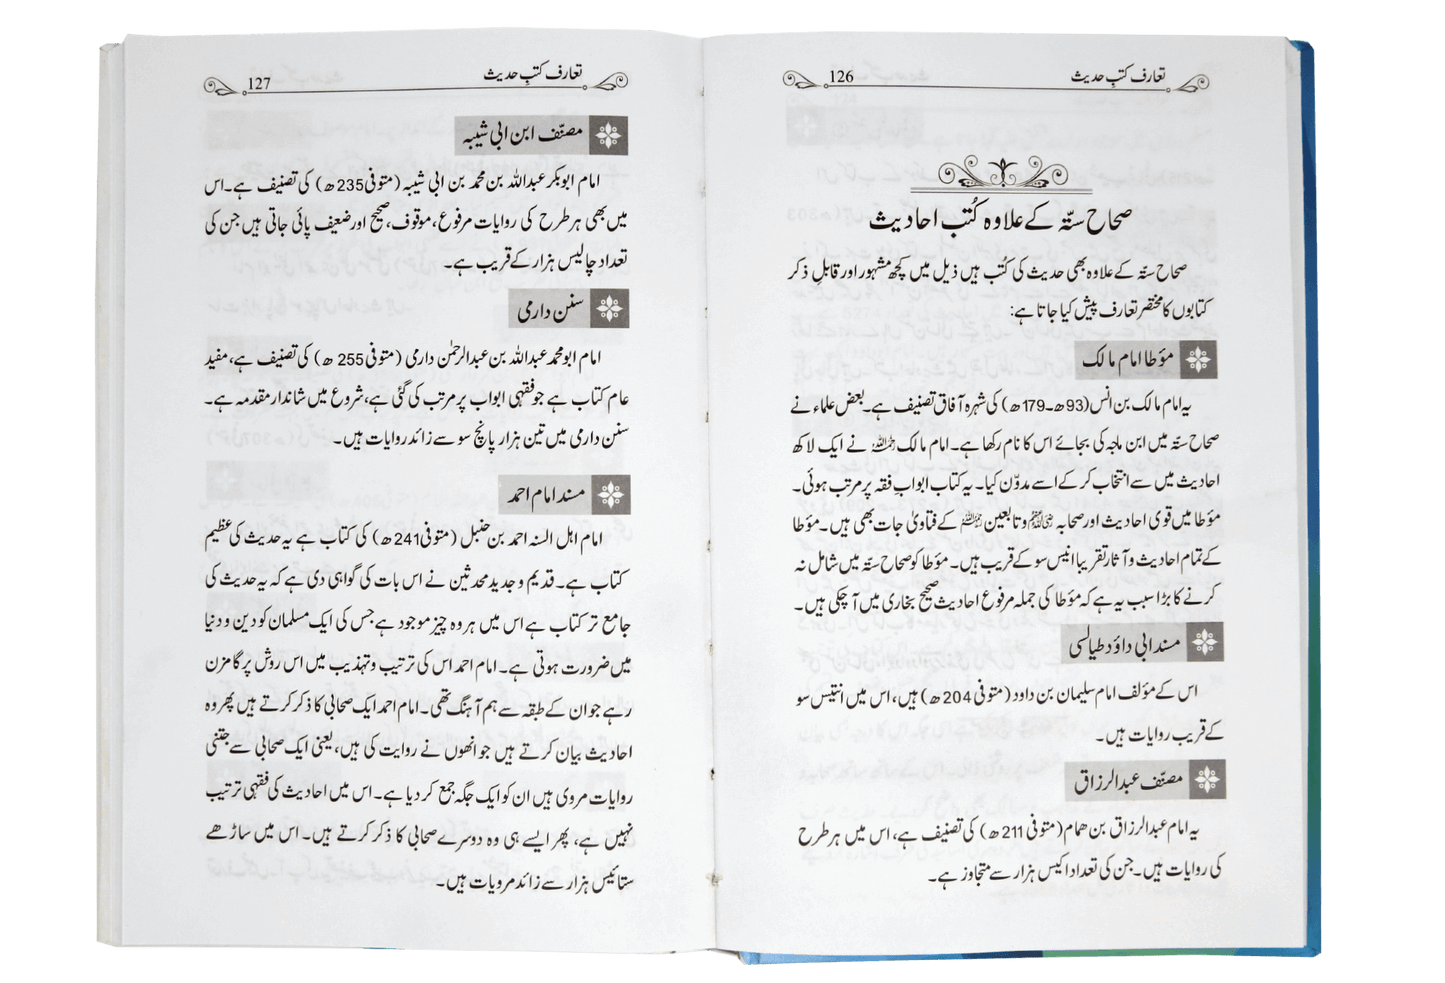 تعارف کتبِ حدیث
126
صحاح ستّہ کے علاوہ کُتب احادیث
صحاح ستّہ کے علاوہ بھی حدیث کی کُتب ہیں ذیل میں کچھ مشہور اور قابلِ ذکر
کتابوں کا مختصر تعارف پیش کیا جاتا ہے:
مؤطا امام مالک
یہ امام مالک بن انس (93ھ۔179ھ) کی شہرہ آفاق تصنیف ہے۔ بعض علماء نے
صحاح ستّہ میں ابن ماجہ کی بجائے اس کا نام رکھا ہے۔ امام مالک رحمہ اللہ نے ایک لاکھ
احادیث میں سے انتخاب کر کے اسے مدوّن کیا۔ یہ کتاب ابوابِ فقہ پر مرتب ہوئی۔
مؤطا میں قوی احادیث اور صحابہ وتابعین کے فتاویٰ جات بھی ہیں۔ مؤطا
کے تمام احادیث و آثار تقریبا انیس سو کے قریب ہیں۔ مؤطا کو صحاح ستّہ میں شامل نہ
کرنے کا بڑا سبب یہ ہے کہ مؤطا کی جملہ مرفوع احادیث صحیح بخاری میں آ چکی ہیں۔
مسند ابی داؤد طیالسی
اس کے مؤلف امام سلیمان بن داود (متوفی 204ھ) ہیں، اس میں انتیس سو
کے قریب روایات ہیں۔
مصنّف عبدالرزاق
یہ امام عبدالرزاق بن ھمام (متوفی 211ھ) کی تصنیف ہے، اس میں ہر طرح
کی روایات ہیں۔ جن کی تعداد اکیس ہزار سے متجاوز ہے۔
تعارف کتبِ حدیث
127
مصنّف ابن ابی شیبہ
امام ابوبکر عبداللہ بن محمد بن ابی شیبہ (متوفی 235ھ) کی تصنیف ہے۔ اس
میں بھی ہر طرح کی روایات مرفوع، موقوف، صحیح اور ضعیف پائی جاتی ہیں جن کی
تعداد چالیس ہزار کے قریب ہے۔
سنن دارمی
امام ابو محمد عبداللہ بن عبدالرحمٰن دارمی (متوفی 255 ھ) کی تصنیف ہے، مفید
عام کتاب ہے جو فقہی ابواب پر مرتب کی گئی ہے، شروع میں شاندار مقدمہ ہے۔
سنن دارمی میں تین ہزار پانچ سو سے زائد روایات ہیں۔
مسند امام احمد
امام اہل السنہ احمد بن حنبل (متوفی 241ھ) کی کتاب ہے یہ حدیث کی عظیم
کتاب ہے۔ قدیم و جدید محدثین نے اس بات کی گواہی دی ہے کہ یہ حدیث کی
جامع تر کتاب ہے اس میں ہر وہ چیز موجود ہے جس کی ایک مسلمان کو دین و دنیا
میں ضرورت ہوتی ہے۔ امام احمد اس کی ترتیب و تہذیب میں اس روش پر گامزن
رہے جو ان کے طبقہ سے ہم آہنگ تھی۔ امام احمد ایک صحابی کا ذکر کرتے ہیں پھر وہ
احادیث بیان کرتے ہیں جو انھوں نے روایت کی ہیں، یعنی ایک صحابی سے جتنی
روایات مروی ہیں ان کو ایک جگہ جمع کر دیا ہے۔ اس میں احادیث کی فقہی ترتیب
نہیں ہے، پھر ایسے ہی وہ دوسرے صحابی کا ذکر کرتے ہیں۔ اس میں ساڑھے
ستائیس ہزار سے زائد مرویات ہیں۔